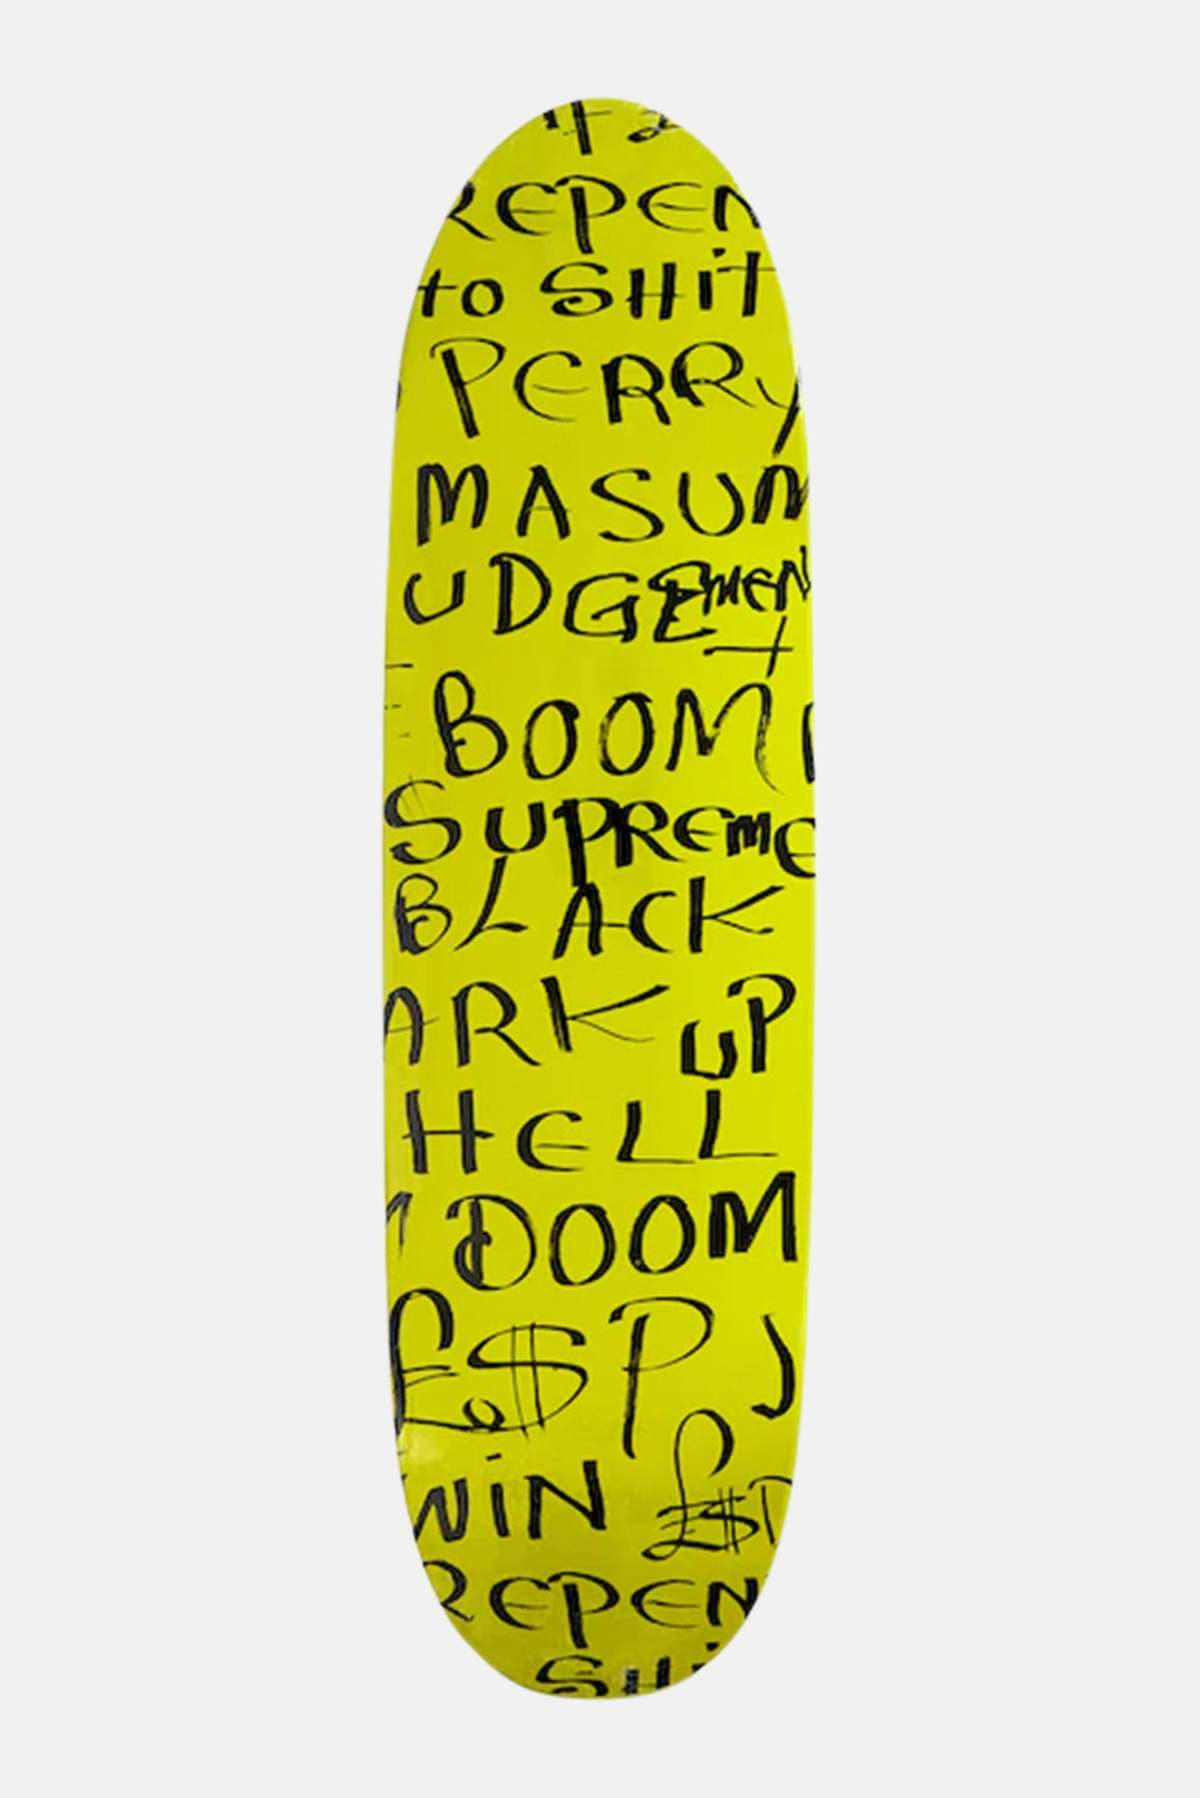 REPEN
to SHiT
PERRY
MASUM
UDGEMENT
BOOM
SUPREME
BLACK
ARK UP
HELL
DOOM
£$P J
WiN £$P
REPEN
SHi